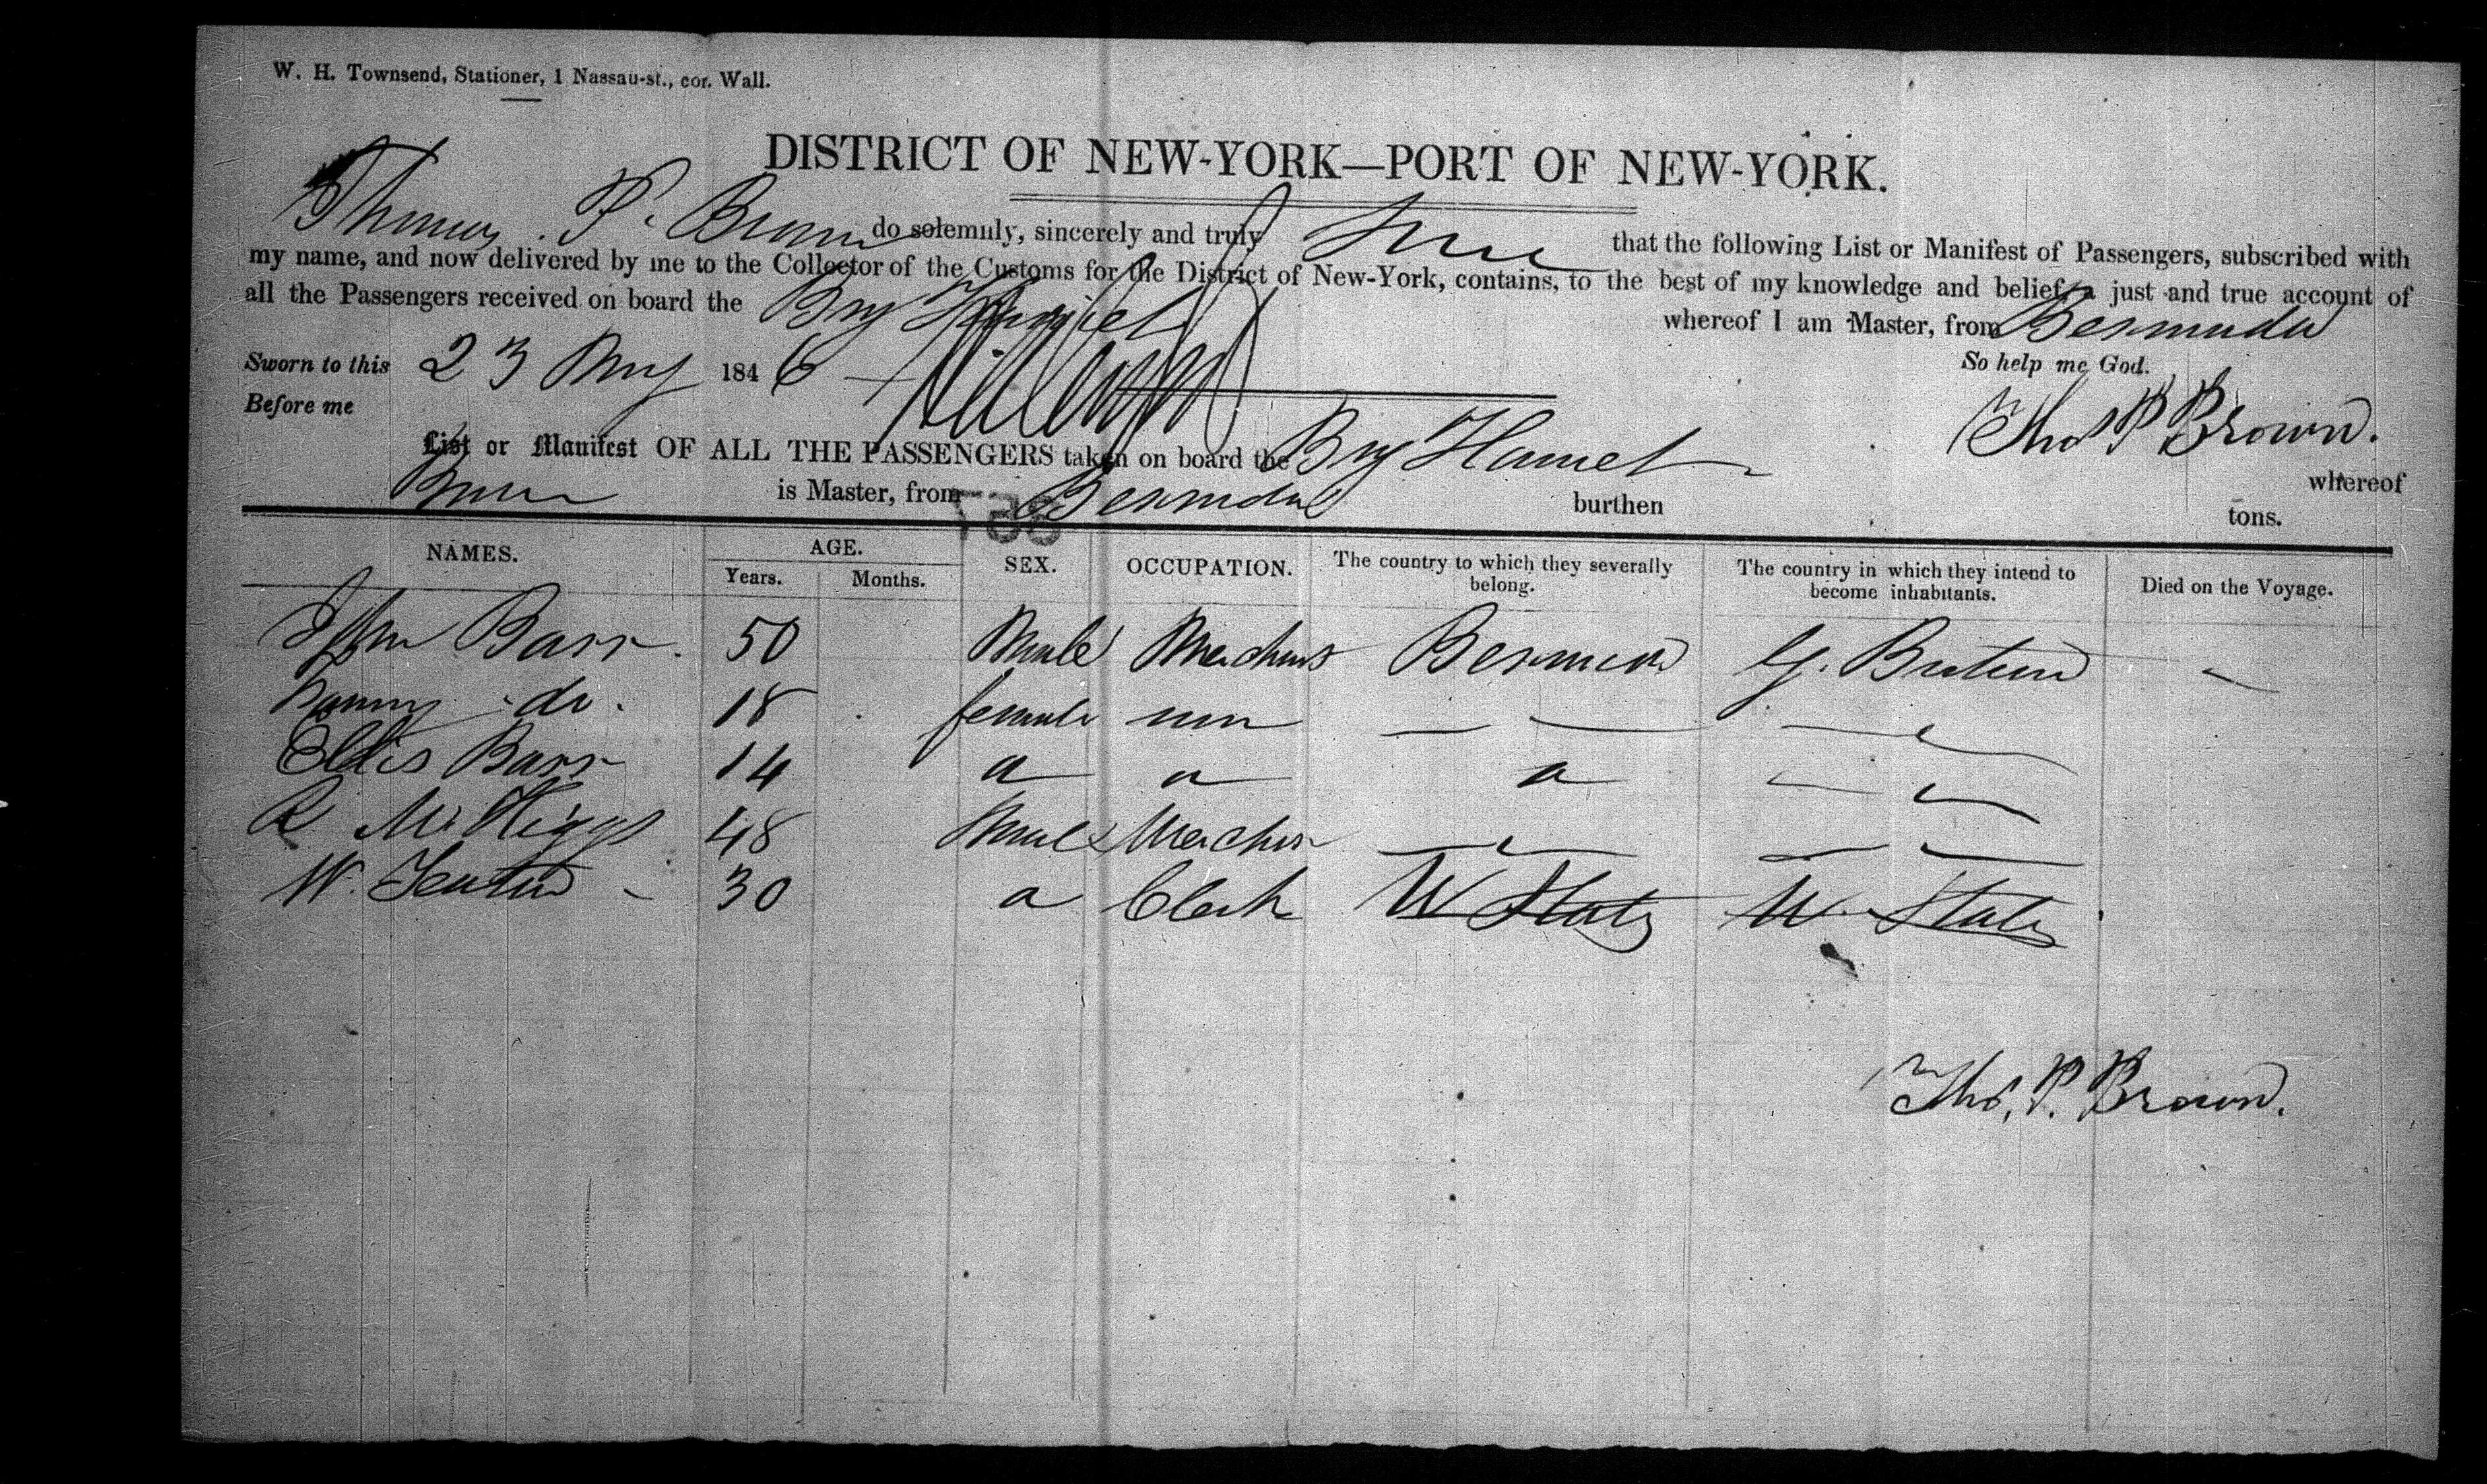 W. H. Townsend, Stationer, 1 Nassau-st., cor. Wall.
DISTRICT OF NEW-YORK—PORT OF NEW-YORK.
Thomas P. Brown do solemnly, sincerely and truly that the following List or Manifest of Passengers, subscribed with
my name, and now delivered by me to the Collector of the Customs for the District of New-York, contains, to the best of my knowledge and belief, a just and true account of
all the Passengers received on board the Brig whereof I am Master, from Bermuda
Sworn to this 23 May 1846 So help me God.
Before me Thos P Brown.
List or Manifest OF ALL THE PASSENGERS taken on board the Brig whereof
Brown is Master, from Bermuda burthen tons.
NAMES. AGE. Years. Months. SEX. OCCUPATION. The country to which they severally belong. The country in which they intend to become inhabitants. Died on the Voyage.
John Barr. 50 Male Merchant Bermuda G. Britain –
do. 18 female non
Barr 14 a a a
48 Male Mercha
W. 30 a Clerk U States U. States
Thos. P. Brown.